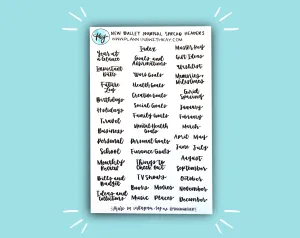 hey
NEW BULLET JOURNAL SPREAD HEADERS
WWW.PLANNINGWITHKAY.COM
Year at
a Glance
Important
Dates
Future
Log
Birthdays
Holidays
Travel
Business
Personal
School
Monthly
Review
Bills and
Budget
Ideas and
Index
Goals and
Aspirations
Work Goals
Health Goals
Creative Goals
Social Goals
Family Goals
Mental Health
Goals
Personal Goals
Finance Goals
Things to
Check out
TV Shows
Books Movies
Music Places
Master Key
Gift Ideas
Wishlist
Memories +
Milestones
Grid
Spacing
January
February
March
April May
June July
August
September
October
November
December